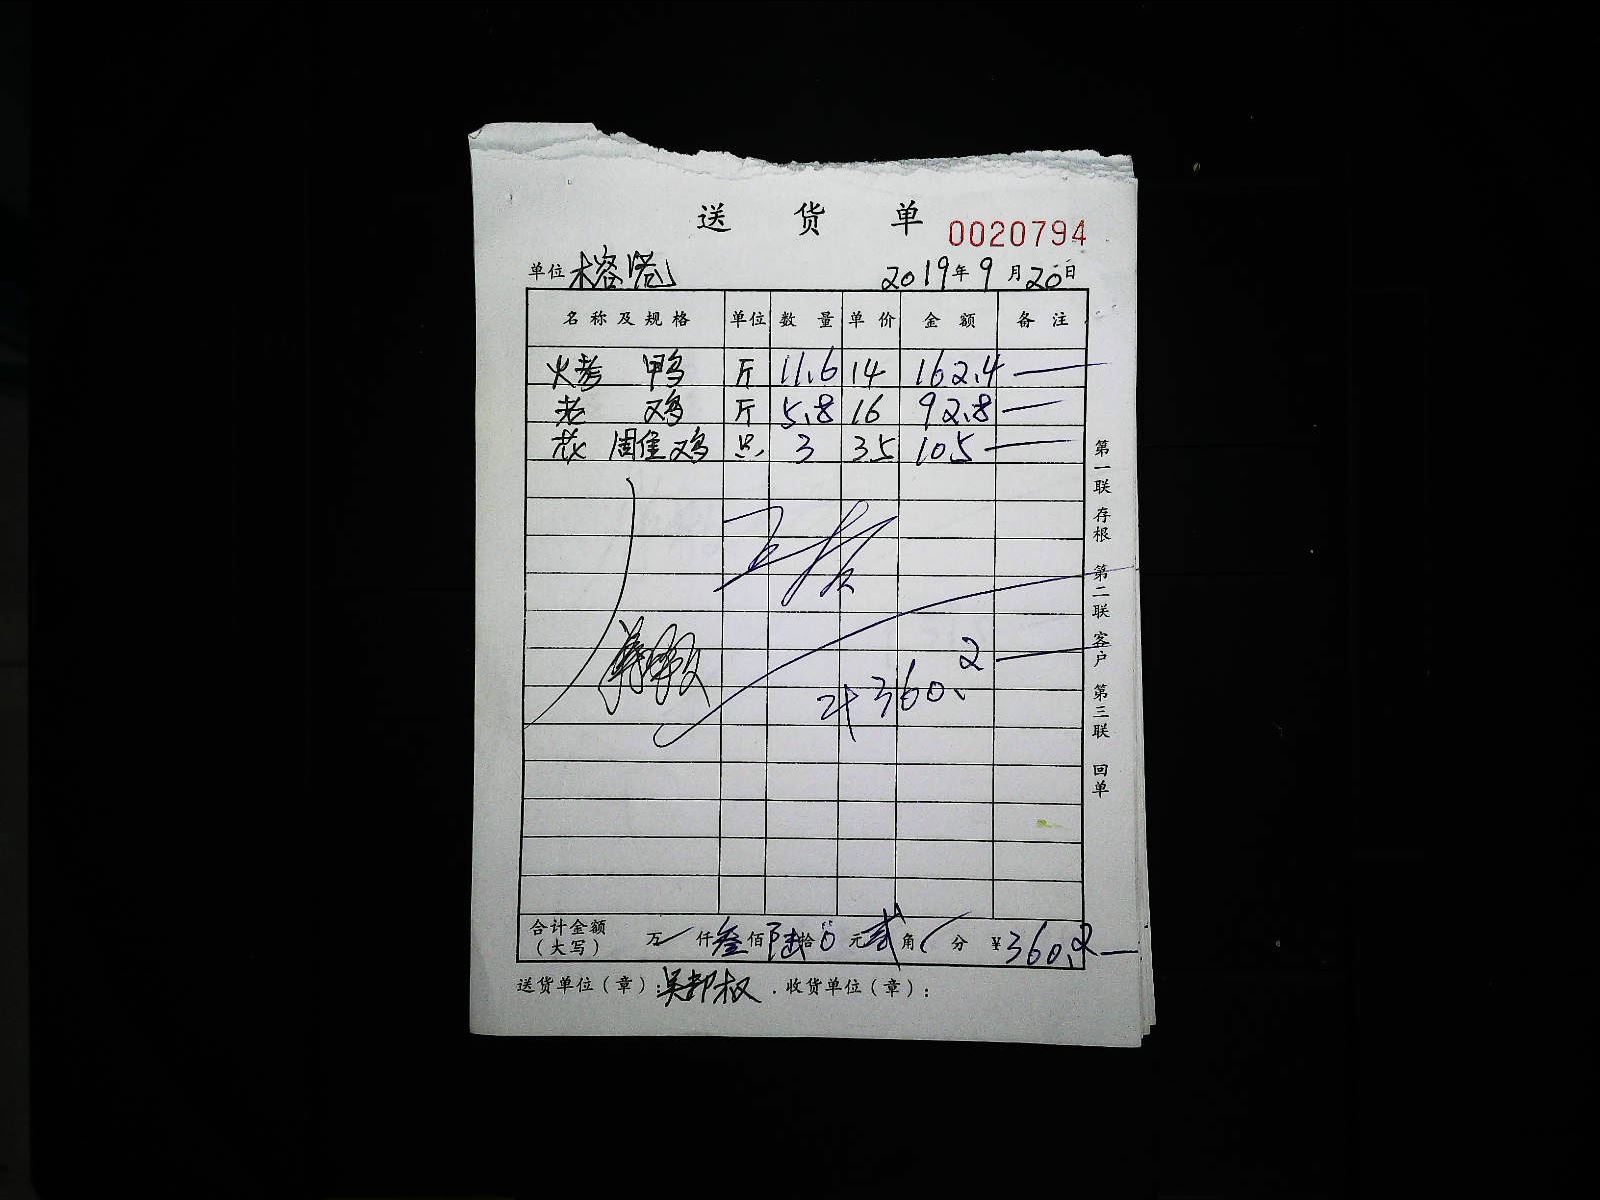 送 货 单 0020794
单位 榕港 2019年9月20日
名称及规格 单位 数量 单价 金额 备注
火考 鸭 斤 11.6 14 162.4 —
老 鸡 斤 5.8 16 92.8 —
只 3 35 105 —
计360.2 —
合计金额（大写） 万 仟叁佰陆拾0元贰角 分 ￥360.2—
送货单位（章）：吴邦权 . 收货单位（章）：
第一联 存根 第二联 客户 第三联 回单